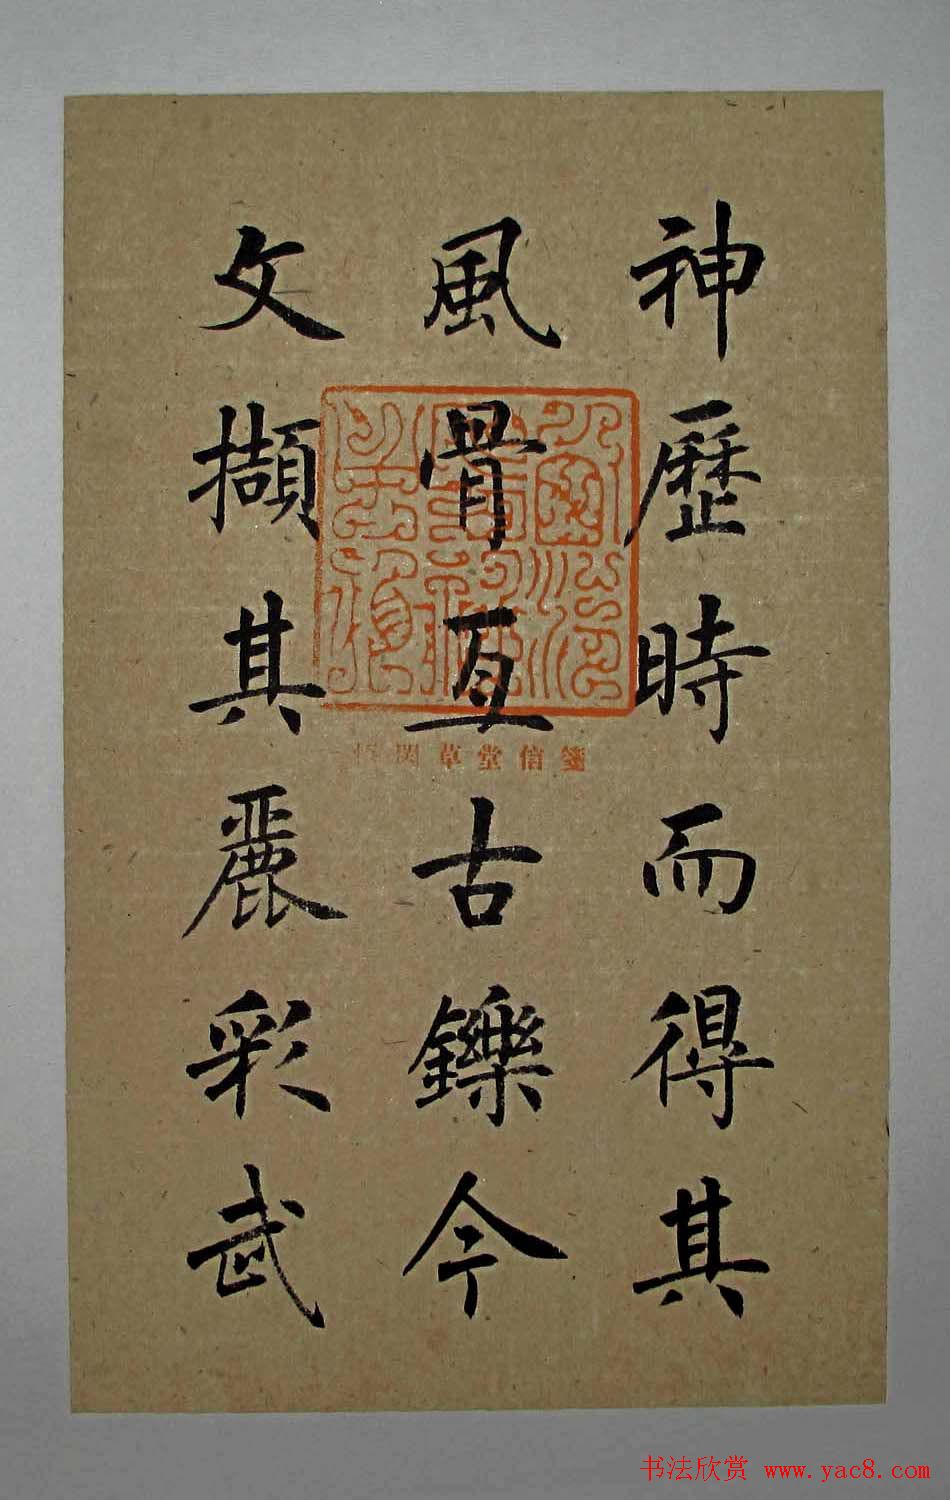 神歷時而得其
風骨互古鑠今
文擷其麗彩武
箋信堂草閑
书法欣赏 www.yac8.com